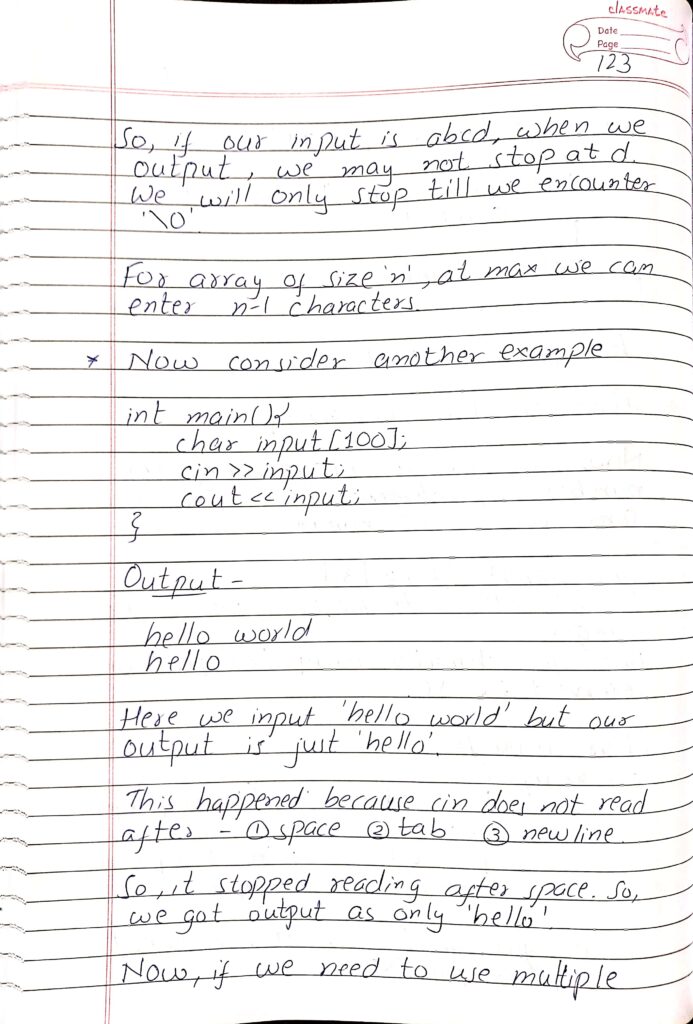 classmate
Date
Page
123
So, if our input is abcd, when we
output, we may not stop at d.
We will only stop till we encounter
'\0'
For array of size 'n', at max we can
enter n-1 characters.
* Now consider another example
int main(){
char input[100];
cin >> input;
cout << input;
}
Output -
hello world
hello
Here we input 'hello world' but our
output is just 'hello'.
This happened because cin does not read
after - ① space ② tab ③ newline.
So, it stopped reading after space. So,
we got output as only 'hello'
Now, if we need to use multiple